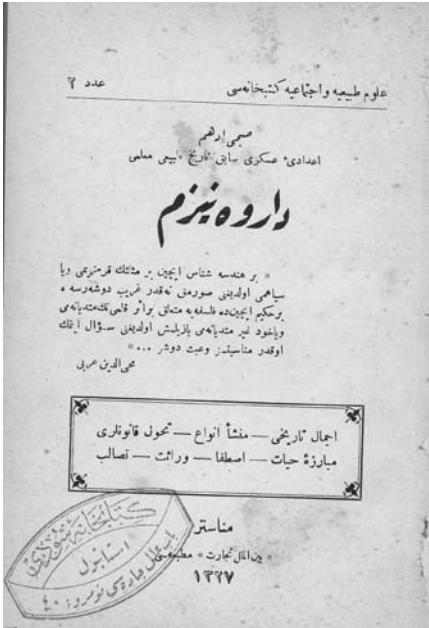 علوم طبیعیه و اجتماعیه کتبخانه‌سی
عدد ۲
صبحی ادهم
اعدادیٔ عسکری سابق تاریخ طبیعی معلمی
داروه‌نیزم
« بر هندسه شناس ایچین بر مثلثك قرمزیمی ویا
سیاهمی اولدیغنی صورمق نه‌قدر غریب دوشه‌رسه ،
بر حکیم ایچین‌ده فلسفه‌یه متعلق بر اثر قلمی‌نك متدیانه‌می
ویاخود غیر متدیانه‌می یازیلمش اولدیغنی سؤال ایتمك
اوقدر مناسبتسز وعبث دوشر ... »
محی‌الدین عربی
اجمال تاریخی — منشأ انواع — تحول قانونلری
مبارزهٔ حیات — اصطفا — وراثت — تصالب
مناستر
« بین‌الملل تجارت » مطبعه‌سی
۱۳۲۷
کتبخانه
استانبول
باب عالی جاده‌سی نومرو : ٤٠